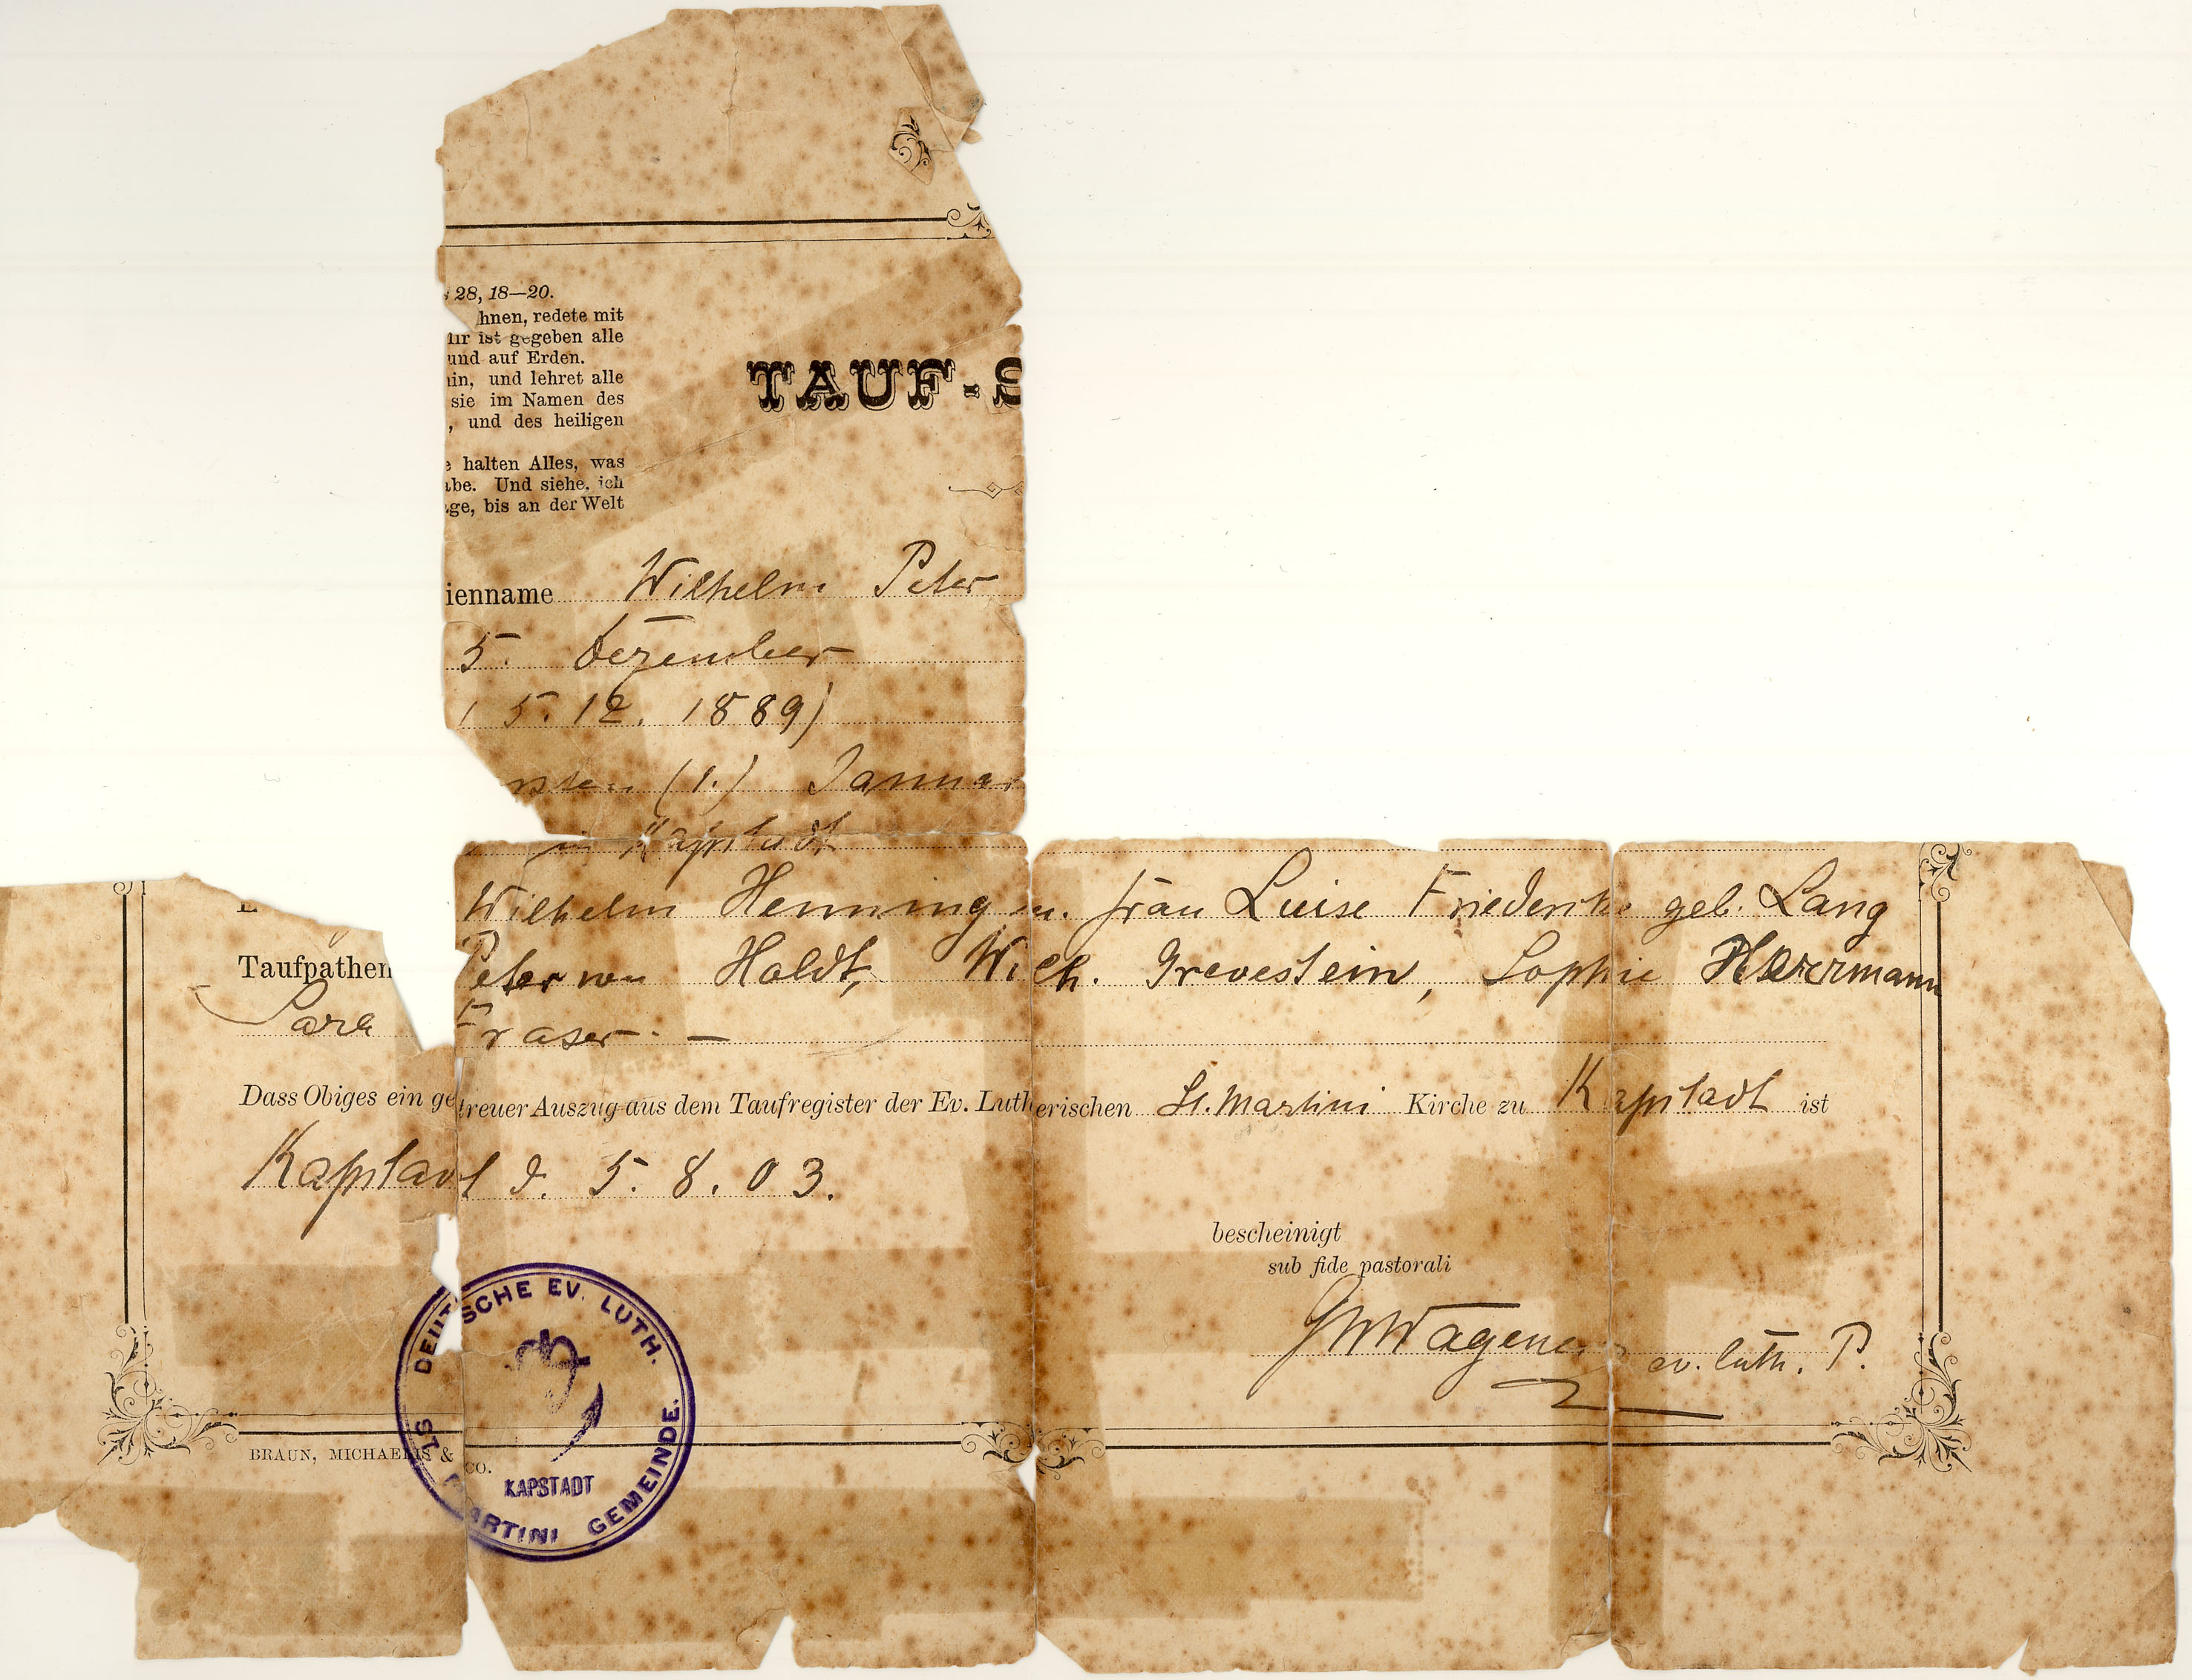 28, 18—20.
hnen, redete mit
ir ist gegeben alle
und auf Erden.
hin, und lehret alle
sie im Namen des
, und des heiligen
halten Alles, was
abe. Und siehe, ich
ge, bis an der Welt
TAUF-S
ienname Wilhelm Peter
5. Dezember
5. 12. 1889)
rsten (1.) Januar
in Kapstadt
Wilhelm Henning u. frau Luise Friederike geb. Lang
Taufpathen Peter von Holdt, Wilh. Grevestein, Sophie Herrmann
Sara Fraser. —
Dass Obiges ein getreuer Auszug aus dem Taufregister der Ev. Lutherischen St. Martini Kirche zu Kapstadt ist
Kapstadt d. 5. 8. 03.
bescheinigt
sub fide pastorali
Wagener ev. luth. P.
DEUTSCHE EV. LUTH.
ST MARTINI GEMEINDE.
KAPSTADT
BRAUN, MICHAELIS & CO.